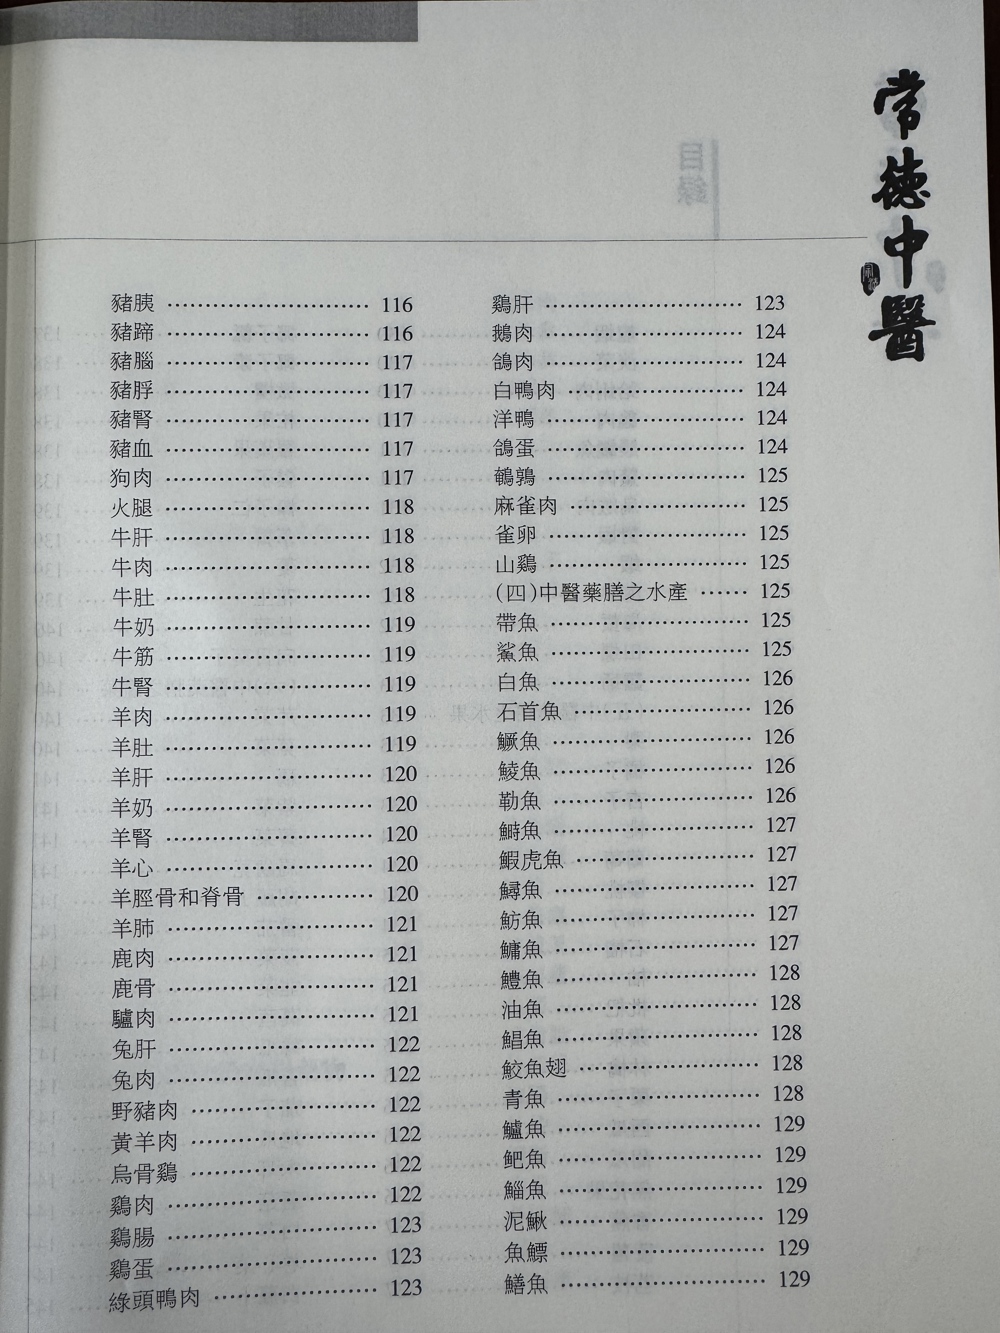 常德中醫
豬胰 ………………………… 116
豬蹄 ………………………… 116
豬腦 ………………………… 117
豬脬 ………………………… 117
豬腎 ………………………… 117
豬血 ………………………… 117
狗肉 ………………………… 117
火腿 ………………………… 118
牛肝 ………………………… 118
牛肉 ………………………… 118
牛肚 ………………………… 118
牛奶 ………………………… 119
牛筋 ………………………… 119
牛腎 ………………………… 119
羊肉 ………………………… 119
羊肚 ………………………… 119
羊肝 ………………………… 120
羊奶 ………………………… 120
羊腎 ………………………… 120
羊心 ………………………… 120
羊脛骨和脊骨 ……………… 120
羊肺 ………………………… 121
鹿肉 ………………………… 121
鹿骨 ………………………… 121
驢肉 ………………………… 121
兔肝 ………………………… 122
兔肉 ………………………… 122
野豬肉 ……………………… 122
黃羊肉 ……………………… 122
烏骨鷄 ……………………… 122
鷄肉 ………………………… 122
鷄腸 ………………………… 123
鷄蛋 ………………………… 123
綠頭鴨肉 …………………… 123
鷄肝 ………………………… 123
鵝肉 ………………………… 124
鴿肉 ………………………… 124
白鴨肉 ……………………… 124
洋鴨 ………………………… 124
鴿蛋 ………………………… 124
鵪鶉 ………………………… 125
麻雀肉 ……………………… 125
雀卵 ………………………… 125
山鷄 ………………………… 125
(四)中醫藥膳之水產 …… 125
帶魚 ………………………… 125
鯊魚 ………………………… 125
白魚 ………………………… 126
石首魚 ……………………… 126
鱖魚 ………………………… 126
鯪魚 ………………………… 126
勒魚 ………………………… 126
鰣魚 ………………………… 127
鰕虎魚 ……………………… 127
鱘魚 ………………………… 127
魴魚 ………………………… 127
鱅魚 ………………………… 127
鱧魚 ………………………… 128
油魚 ………………………… 128
鯧魚 ………………………… 128
鮫魚翅 ……………………… 128
青魚 ………………………… 128
鱸魚 ………………………… 129
鲃魚 ………………………… 129
鯔魚 ………………………… 129
泥鰍 ………………………… 129
魚鰾 ………………………… 129
鱔魚 ………………………… 129